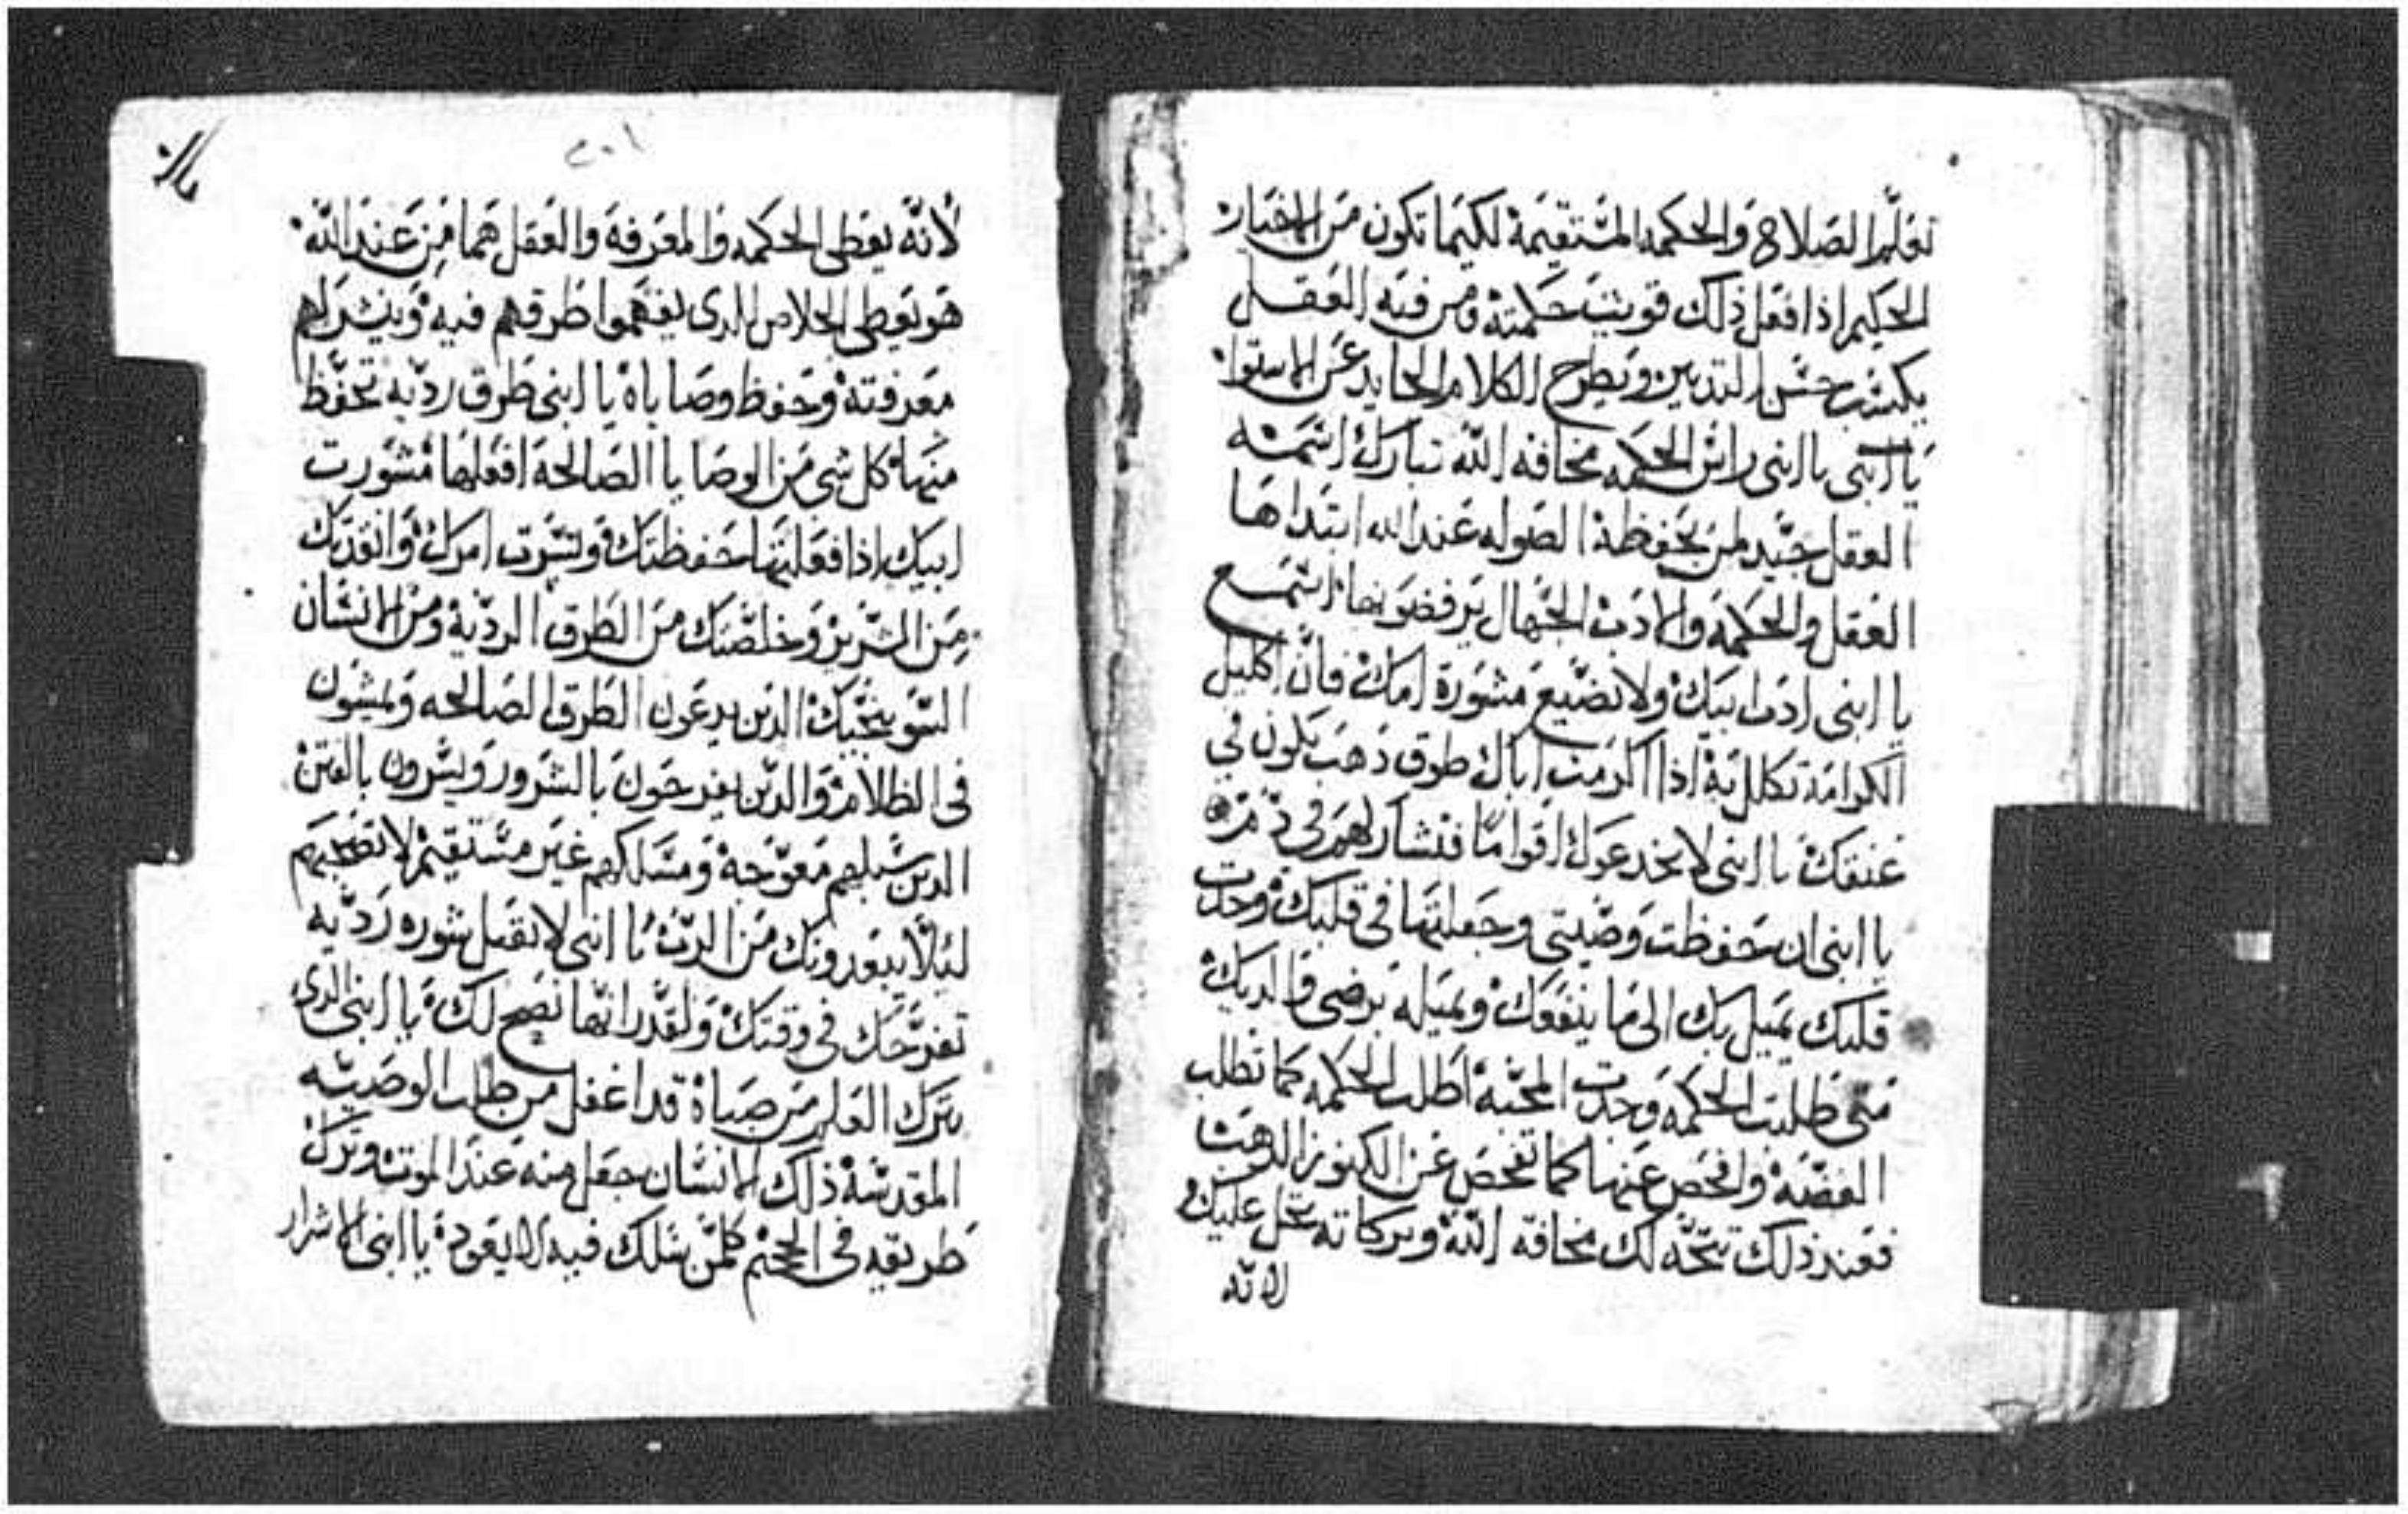 تعلم الصلاح والحكمه المستقيمة لكيما تكون من الاخيار
الحكيم اذا فعل ذلك قويت حكمته ومن فيه العقل
يكتسب حسن التدبير ويطرح الكلام الحايد عن الاستوا
يا ابني يا ابني راس الحكمه مخافه الله تبارك اسمه
العقل جيد لمن يحفظة الصوله عند الله ابتداها
العقل والحكمة والادب الجهال يرفضونها اسمع
يا ابني ادب ابيك ولا تضيع مشورة امك فان اكليل
الكرامة تكلل به اذا اكرمت اباك طوق ذهب يكون في
عنقك يا ابني لا يخدعوك اقواما فتشاركهم في
يا ابني ان حفظت وصيتي وجعلتها في قلبك وجدت
قلبك يميل بك الى ما ينفعك ويميله برضى والديك
متى طلبت الحكمه وجدت المحبة اطلب الحكمه كما تطلب
الفضة وافحص عنها كما تفحص عن الكنوز الدهب
فعند ذلك تتجه لك مخافة الله وبركاته تحل عليك
لانه
٢٠١
لانه يعطى الحكمه والمعرفة والعقل هما من عند الله
هو يعطى الخلاص الدى يفهموا طرقهم فيه وينشر لهم
معرفتة وحفظ وصاياة يا ابنى طرق رديه تحفظ
منها كل شى من الوصايا الصالحة افعلها مشورت
ابيك اذا فعلتها حفظتك ولتسرت امرك وانقدتك
من الشرير وخلصتك من الطرق الردية ومن الانسان
السو ينجيك الدين يدعون الطرق الصالحه ويمشون
فى الظلام والدين يفرحون بالشرور ويسرون بالفتن
الدين سبلهم معوجة ومسالكهم غير مستقيم لا تصحبهم
ليلا يبعدونك من الرب يا ابنى لا تقبل شوره رديه
تفرحك فى وقتك ولقدرانها نصح لك يا ابنى الدى
يترك العلم من صباة قد اغفل من طلب الوصيه
المقدسة ذلك الانسان جعل منه عند الموت وترك
طريقه فى الجحيم كلمن سلك فيه لا يعود يا ابنى الاشرار